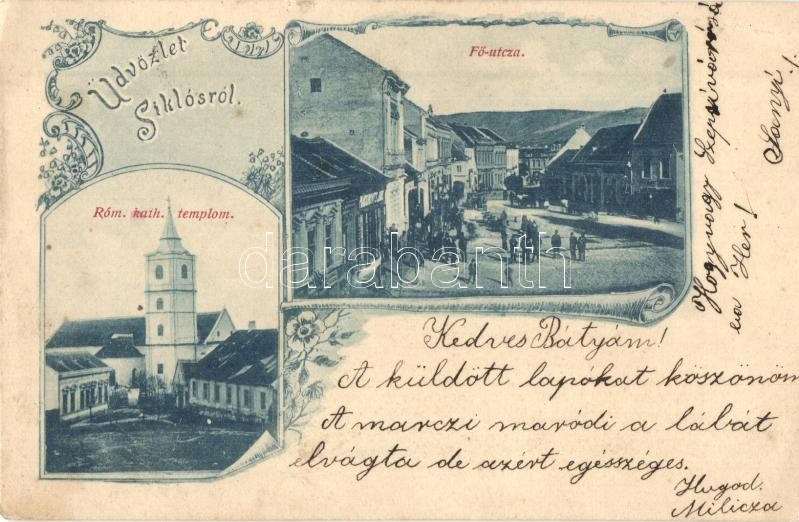 Üdvözlet
Siklósról.
Fő-utcza.
Róm. kath. templom.
darabanth
Kedves Bátyám!
A küldött lapókat köszönöm
A marczi maródi a lábát
elvágta de azért egésszéges.
Hugod.
Milicza
Hogyvagy
Her!
Sanyi!